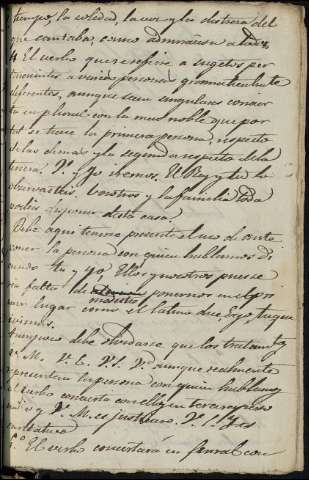 tiempo, la soledad, la voz y la destreza del
que cantaba, como admiración a todos
4 El verbo que se refiere a sugetos per
tenecientes a varias personas gramaticalmente
diferentes, aunque sean singulares concier
ta en plural con la mas noble, que por
tal se tiene la primera persona, respecto
de las demas y la segunda respecto de la
tercera. Vs. y yo iremos. El Rey y tu lo
observasteis. Vosotros y la familia toda
podéis disponer de esta casa.
Debe aqui tenerse presente el uso de ante
poner la persona con quien hablamos di
ciendo tu y yo, Ellos y nosotros pues se
ria falta de maestro ponernos en el pri
mer lugar como el latino dice Ego, tuque
venimus.
Tampoco debe olvidarse que los tratamtos
V. M. V. E. V. S. Vd. aunque realmente
representan la persona con quien hablamos
el verbo concierta con ellos en tercera perso
na y V. M. es justiciero. V. S. I. es
literatura
5.º El verbo concertará en plural con